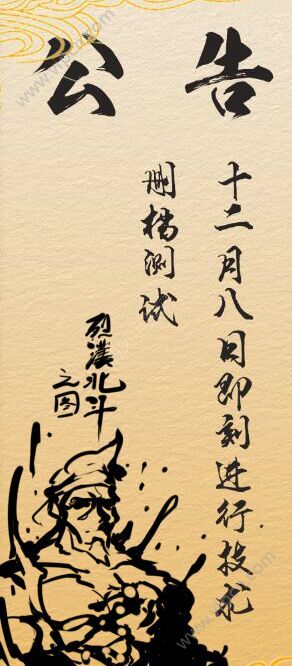 公告
十二月八日即刻进行技术
删档测试
烈漢北斗
之图